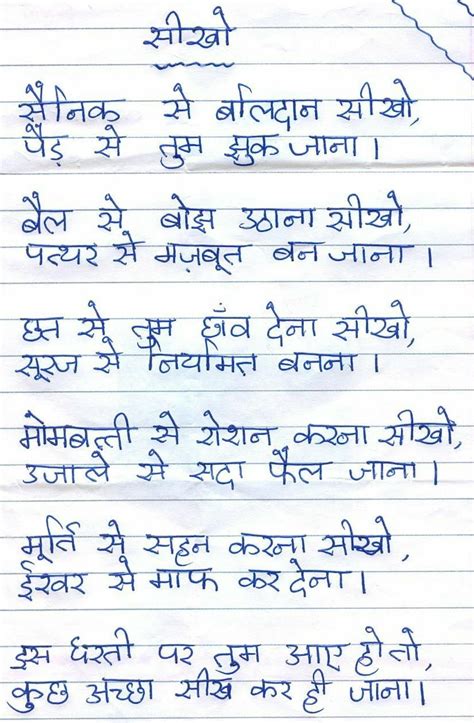 सीखो
सैनिक से बलिदान सीखो,
पेड़ से तुम झुक जाना।
बैल से बोझ उठाना सीखो,
पत्थर से मज़बूत बन जाना।
छत से तुम छाँव देना सीखो,
सूरज से नियमित बनना।
मोमबत्ती से रोशन करना सीखो,
उजाले से सदा फैल जाना।
मूर्ति से सहन करना सीखो,
ईश्वर से माफ कर देना।
इस धरती पर तुम आए हो तो,
कुछ अच्छा सीख कर ही जाना।